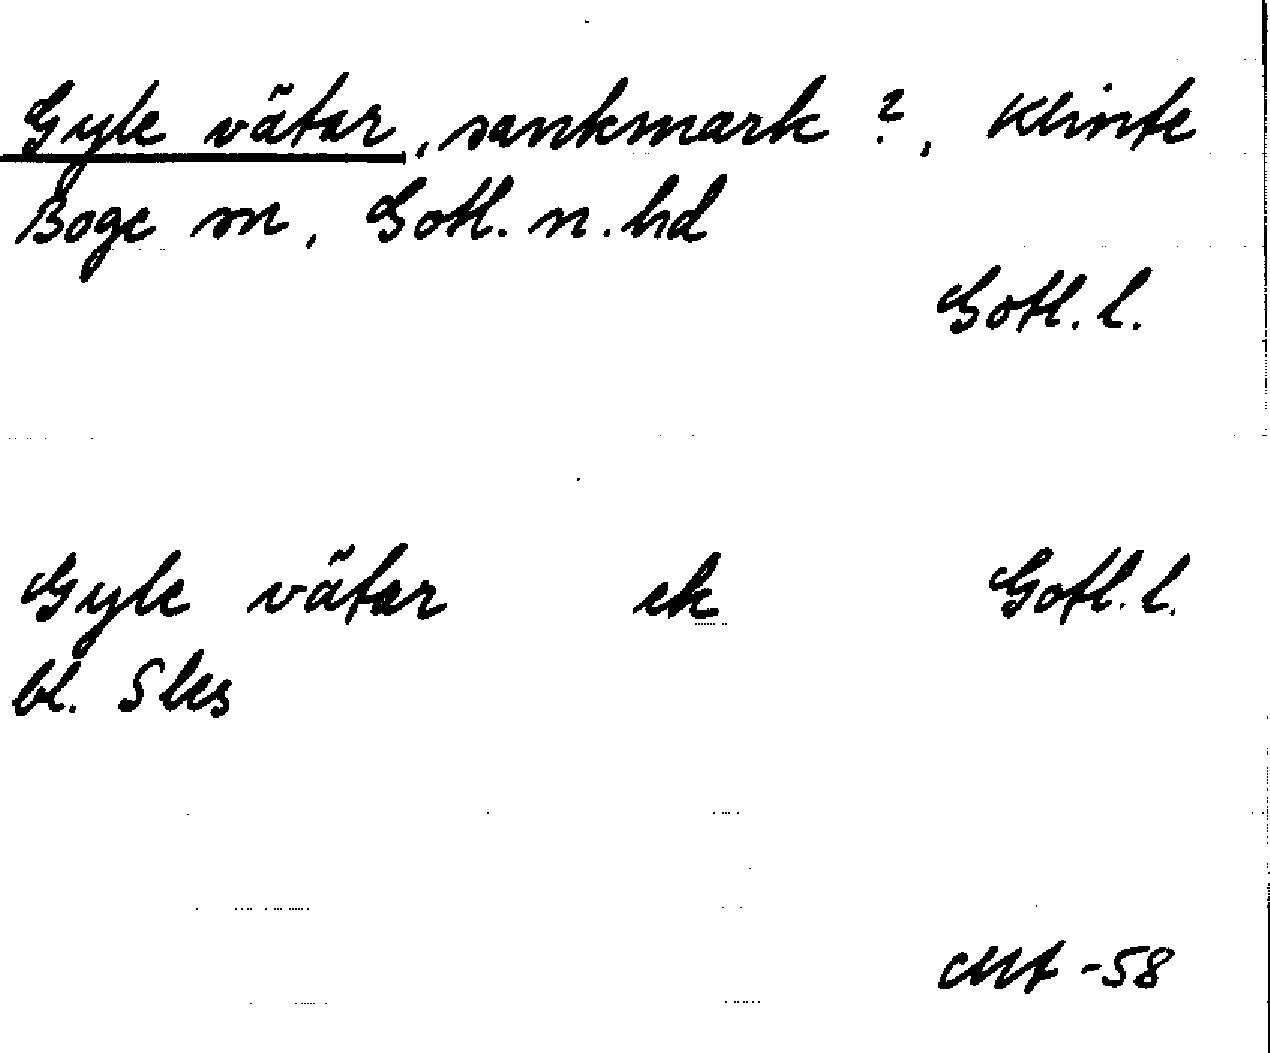 Gyle vätar, sankmark ?, Klinte
Boge sn, Gotl. n. hd
Gotl. l.
Gyle vätar ek Gotl. l.
bl. 5
-58